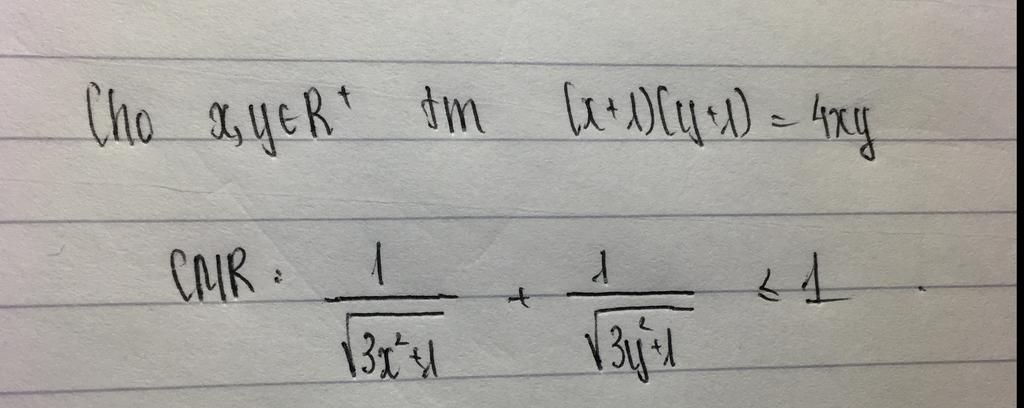 Cho x,y∈R⁺ tm (x+1)(y+1) = 4xy
CMR: 1/√(3x²+1) + 1/√(3y²+1) ≤ 1.